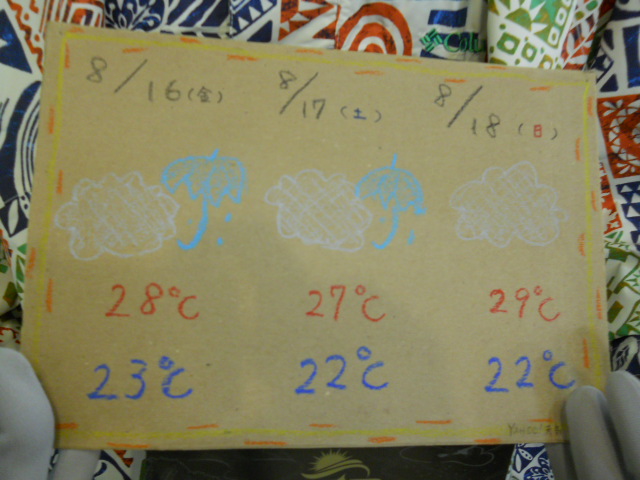 8/16(金) 8/17(土) 8/18(日)
28℃ 27℃ 29℃
23℃ 22℃ 22℃